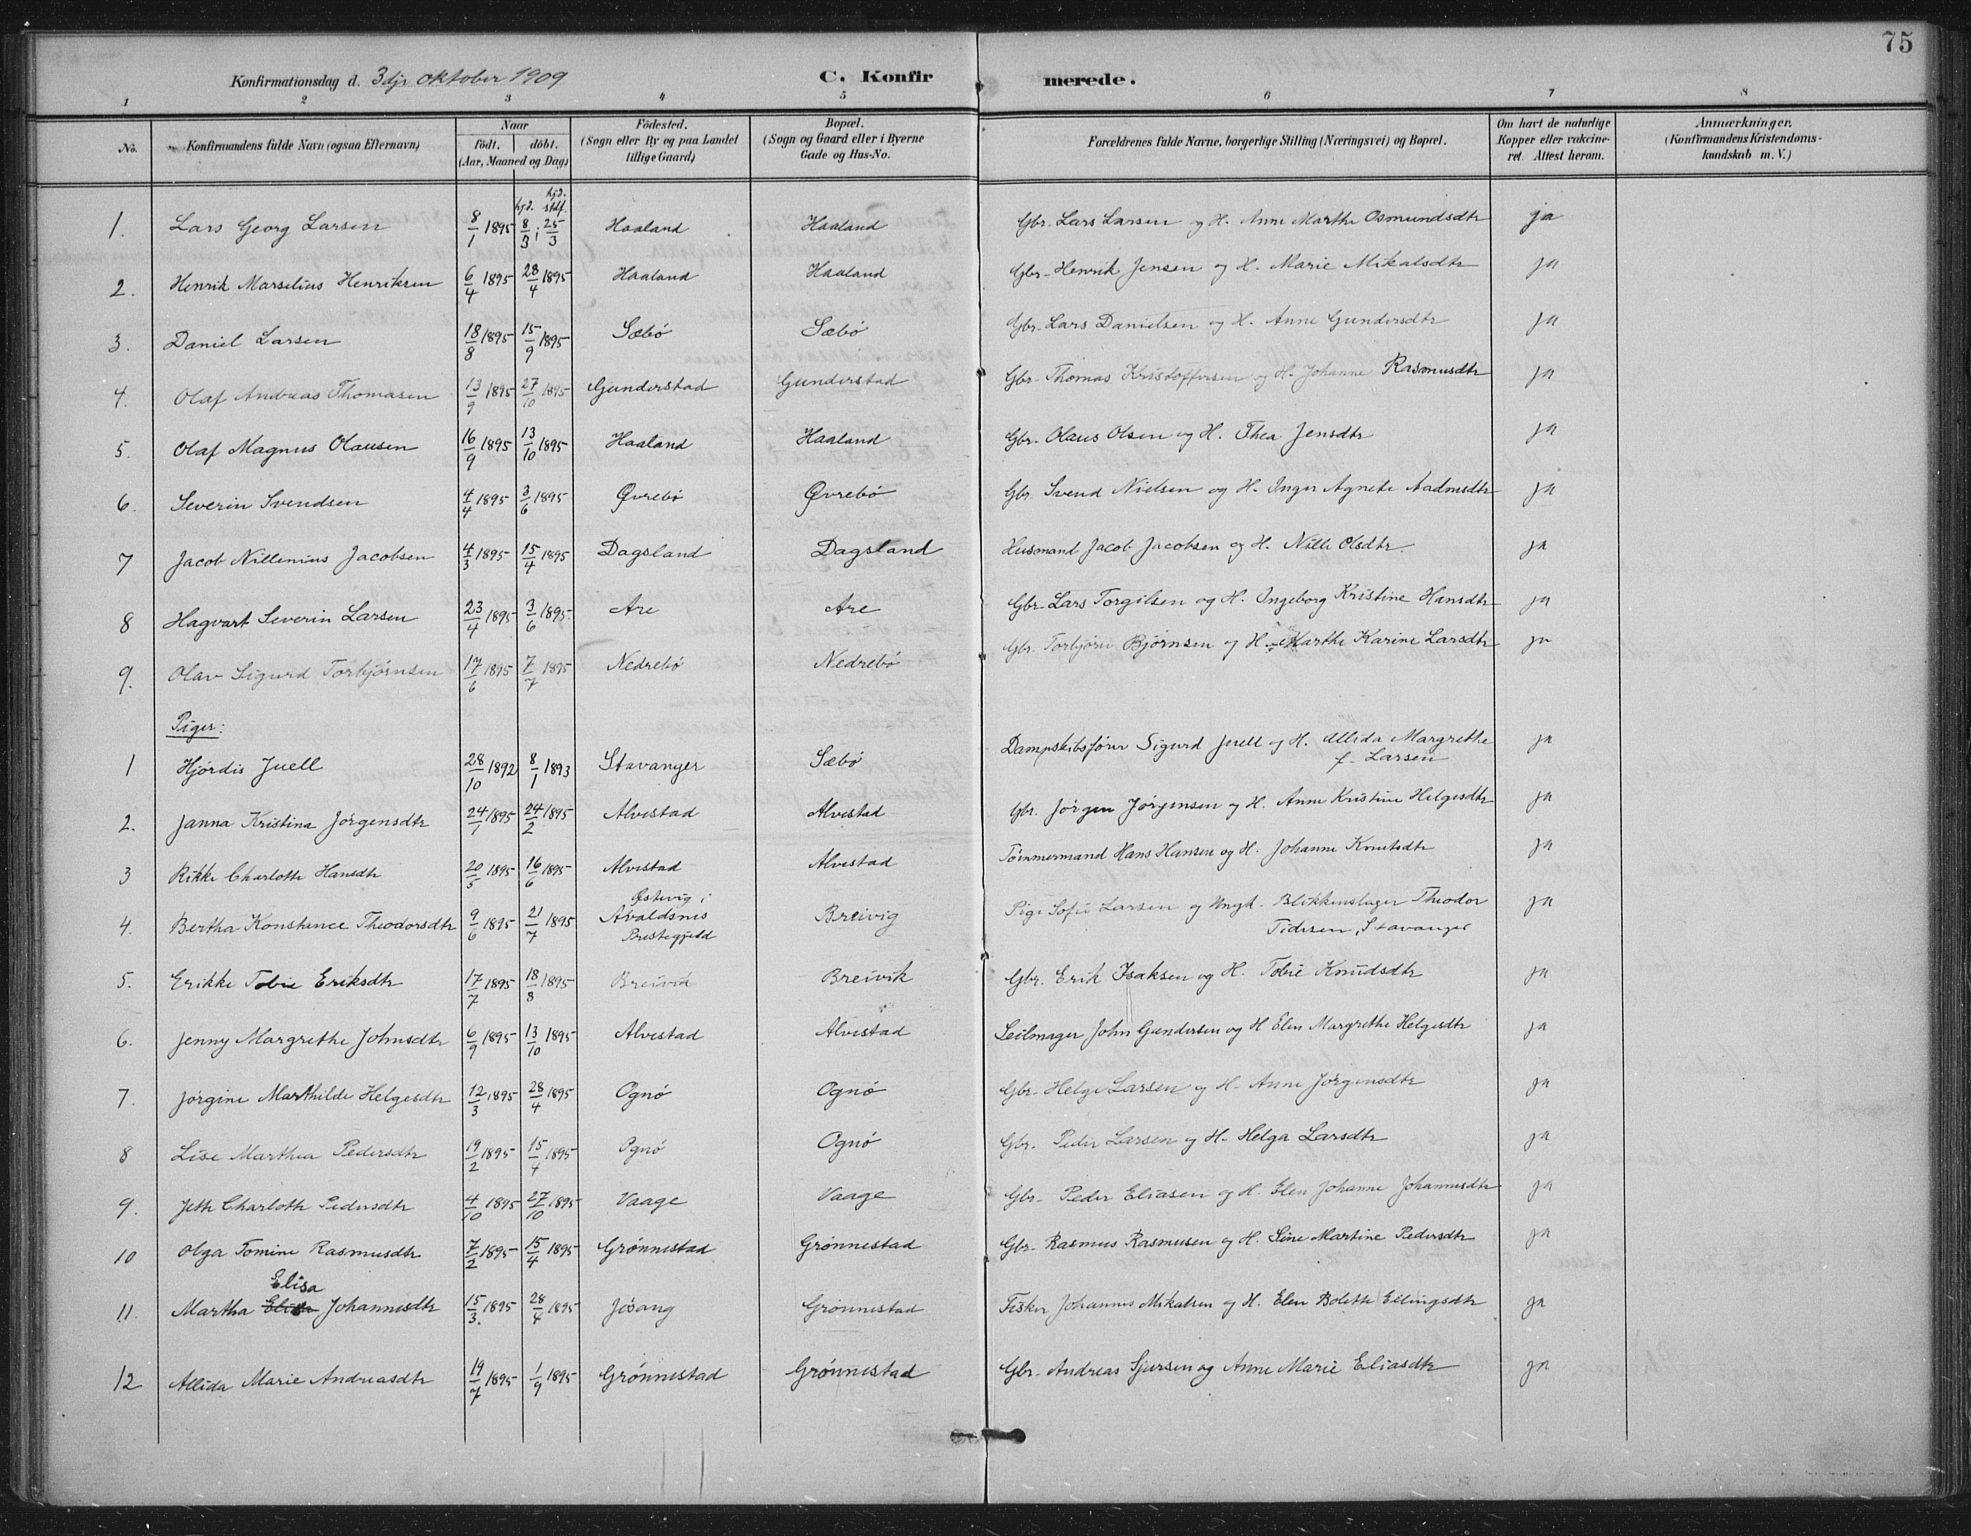 75
Konfirmationsdag d. 3dje oktober 1909 C. Konfir merede.
1 2 3 4 5 6 7 8
No. Konfirmandens fulde Navn (ogsaa Efternavn) Naar født. døbt. (Aar, Maaned og Dag) Fødested. (Sogn eller By og paa Landet tillige Gaard) Bopæl. (Sogn og Gaard eller i Byerne Gade og Hus-No. Forældrenes fulde Navne, borgerlige Stilling (Næringsvei) og Bopæl. Om havt de naturlige Kopper eller vakcineret. Attest herom. Anmærkninger. (Konfirmandens Kristendomskundskab m. V.)
hjd. hjd. stdf.
1. Lars Georg Larsen 8/1 1895 8/3 i 25/3 Haaland Haaland Gbr. Lars Larsen og H. Anne Marthe Osmundsdtr ja
2. Henrik Marselius Henriksen 6/4 1895 28/4 1895 Haaland Haaland Gbr. Henrik Jensen og H. Marie Mikalsdtr ja
3. Daniel Larsen 18/8 1895 15/9 1895 Sæbø Sæbø Gbr. Lars Danielsen og H. Anne Gundersdtr ja
4. Olaf Andreas Thomasen 13/9 1895 27/10 1895 Gunderstad Gunderstad Gbr. Thomas Kristoffersen og H. Johanne Rasmusdtr ja
5. Olaf Magnus Olausen 16/9 1895 13/10 1895 Haaland Haaland Gbr. Olaus Olsen og H. Thea Jensdtr ja
6. Severin Svendsen 4/4 1895 3/6 1895 Øvrebø Øvrebø Gbr. Svend Nielsen og H. Inger Agnete Aadnesdtr ja
7 Jacob Nillenius Jacobsen 4/3 1895 15/4 1895 Dagsland Dagsland Husmand Jacob Jacobsen og H. Nille Olsdtr. ja
8 Hagvart Severin Larsen 23/4 1895 3/6 1895 Are Are Gbr. Lars Torgilsen og H. Ingeborg Kristine Hansdtr ja
9. Olav Sigurd Torbjørnsen 17/6 1895 7/7 1895 Nedrebø Nedrebø Gbr. Torbjørn Bjørnsen og H. Marthe Karine Larsdtr ja
Piger:
1 Hjørdis Juell 28/10 1892 8/1 1893 Stavanger Sæbø Dampskibsfører Sigurd Juell og H. Allida Margrethe ja
f. Larsen
2. Janna Kristina Jørgensdtr 24/1 1895 24/2 1895 Alvestad Alvestad Gbr. Jørgen Jørgensen og H. Anne Kristine Helgesdtr ja
3 Rikke Charlotte Hansdtr 20/5 1895 16/6 1895 Alvestad Alvestad Tømmermand Hans Hansen og H. Johanne Knutsdtr ja
Østevig i
4. Bertha Konstance Theodorsdtr 9/6 1895 21/7 1895 Avaldsnes Breivig Pige Sofie Larsen og Ungk. Blikkenslager Theodor ja
Prestegjeld Tidesen, Stavanger
5. Erikke Tobie Eriksdtr 17/7 1895 18/8 1895 Breivik Breivik Gbr. Erik Isaksen og H. Tobie Knudsdtr ja
6. Jenny Margrethe Johnsdtr 6/9 1895 13/10 1895 Alvestad Alvestad Seilmager John Gundersen og H Elen Margrethe Helgesdtr ja
7. Jørgine Marthilde Helgesdtr 12/3 1895 28/4 1895 Ognø Ognø Gbr. Helge Larsen og H. Anne Jørgensdtr ja
8 Lise Marthea Pedersdtr 19/2 1895 15/4 1895 Ognø Ognø Gbr. Peder Larsen og H. Helga Larsdtr ja
9. Jette Charlotte Pedersdtr 4/10 1895 27/10 1895 Vaage Vaage Gbr. Peder Eliasen og H. Elen Johanne Johannesdtr ja
10 Olga Tomine Rasmusdtr 7/2 1895 15/4 1895 Grønnestad Grønnestad Gbr. Rasmus Rasmusen og H. Sine Martine Pedersdtr ja
Elisa
11. Martha Johannesdtr 15/3. 1895 28/4 1895 Jøsang Grønnestad Fisker Johannes Mikalsen og H. Elen Bolette Ellingsdtr ja
12 Allida Marie Andreasdtr 19/7 1895 1/9 1895 Grønnestad Grønnestad Gbr. Andreas Sjursen og Anne Marie Eliasdtr ja